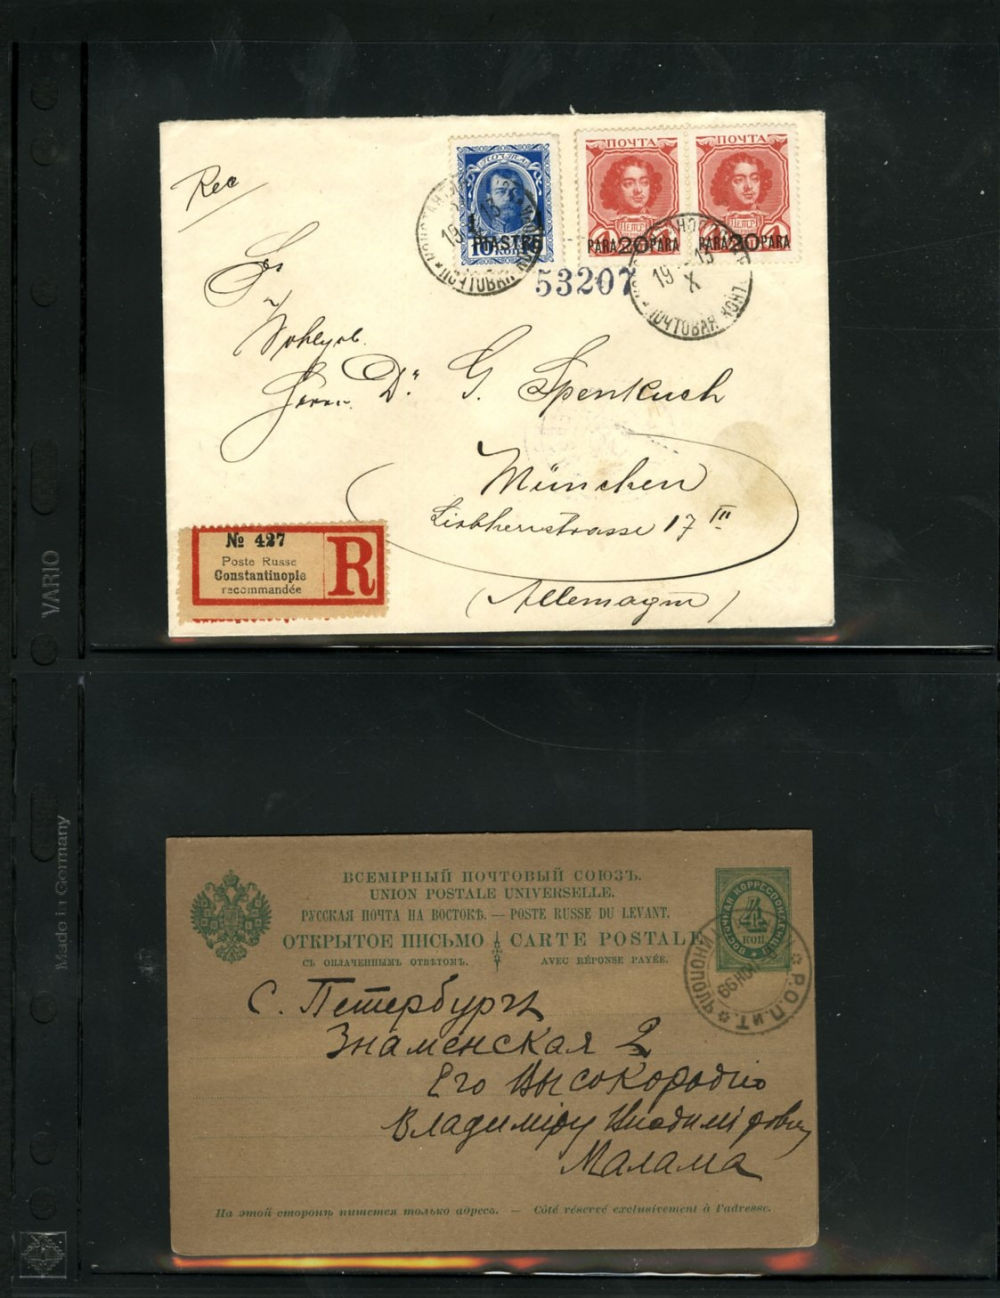 Rec
ПОЧТА ПОЧТА
1 PIASTRE
10 КОП
PARA 20 PARA PARA 20 PARA
53207
19 13
X
ПОЧТОВАЯ КОНТ.
Herrn Dr. G. Spenkuch
München
Liebherrstrasse 17 III
(Allemagne)
№ 427
Poste Russe
Constantinople
recommandée
R
VARIO
Made in Germany
ВСЕМІРНЫЙ ПОЧТОВЫЙ СОЮЗЪ.
UNION POSTALE UNIVERSELLE.
РУССКАЯ ПОЧТА НА ВОСТОКѢ. — POSTE RUSSE DU LEVANT.
ОТКРЫТОЕ ПИСЬМО CARTE POSTALE
СЪ ОПЛАЧЕННЫМЪ ОТВѢТОМЪ. AVEC RÉPONSE PAYÉE.
ВОСТОЧНАЯ КОРРЕСПОНДЕНЦІЯ
4
КОП.
Р.О.П.иТ.
С. Петербургъ
Знаменская 2
Его Высокородію
Владиміру Владиміровичу
Малама
На этой сторонѣ пишется только адресъ. — Côté réservé exclusivement à l'adresse.